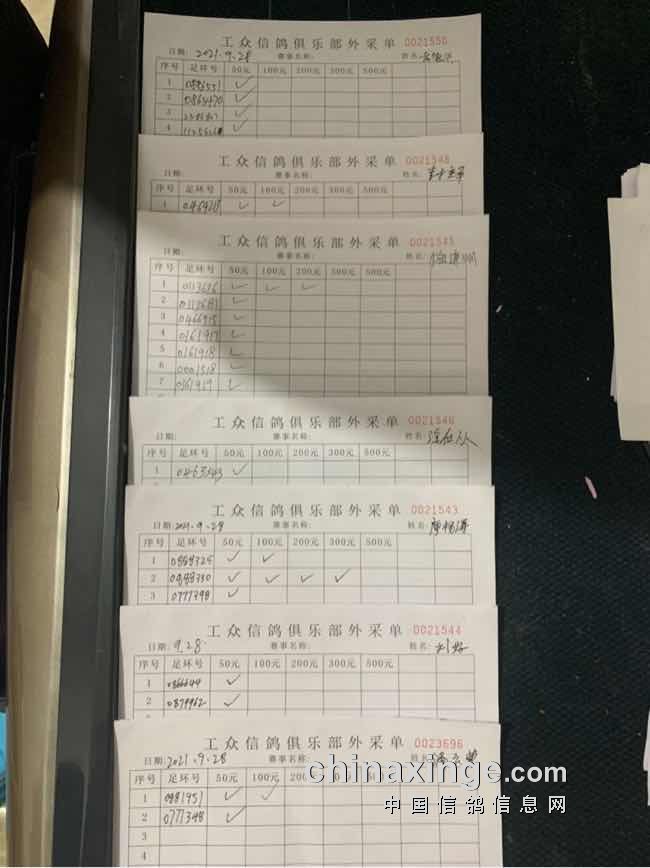 工众信鸽俱乐部外采单 0021550
日期: 2021.9.28 赛事名称: 姓名:
序号 足环号 50元 100元 200元 300元 500元
1 0886551 ✓
2 0865470 ✓
3 ✓
4 ✓
工众信鸽俱乐部外采单 0021548
日期: 赛事名称: 姓名:
序号 足环号 50元 100元 200元 300元 500元
1 ✓ ✓
工众信鸽俱乐部外采单 0021545
日期: 赛事名称: 姓名:
序号 足环号 50元 100元 200元 500元 500元
1 ✓ ✓ ✓
2 ✓
3 0466915 ✓
4 0161917 ✓
5 0161918 ✓
6 0001518 ✓
7 0161919 ✓
工众信鸽俱乐部外采单 0021546
日期: 赛事名称: 姓名:
序号 足环号 50元 100元 200元 300元 500元
1 0463543 ✓
工众信鸽俱乐部外采单 0021543
日期: 2021.9.28 赛事名称: 姓名:
序号 足环号 50元 100元 200元 300元 500元
1 0888325 ✓ ✓
2 0888330 ✓ ✓ ✓ ✓
3 0777398 ✓
工众信鸽俱乐部外采单 0021544
日期: 9.28 赛事名称: 姓名:
序号 足环号 50元 100元 200元 300元 500元
1 0866644 ✓
2 0879962 ✓
工众信鸽俱乐部外采单 0023696
日期: 2021.9.28 赛事名称: 姓名:
序号 足环号 50元 100元 200
1 0881951 ✓ ✓
2 0771348 ✓
3
4
chinaxinge.com
中国信鸽信息网